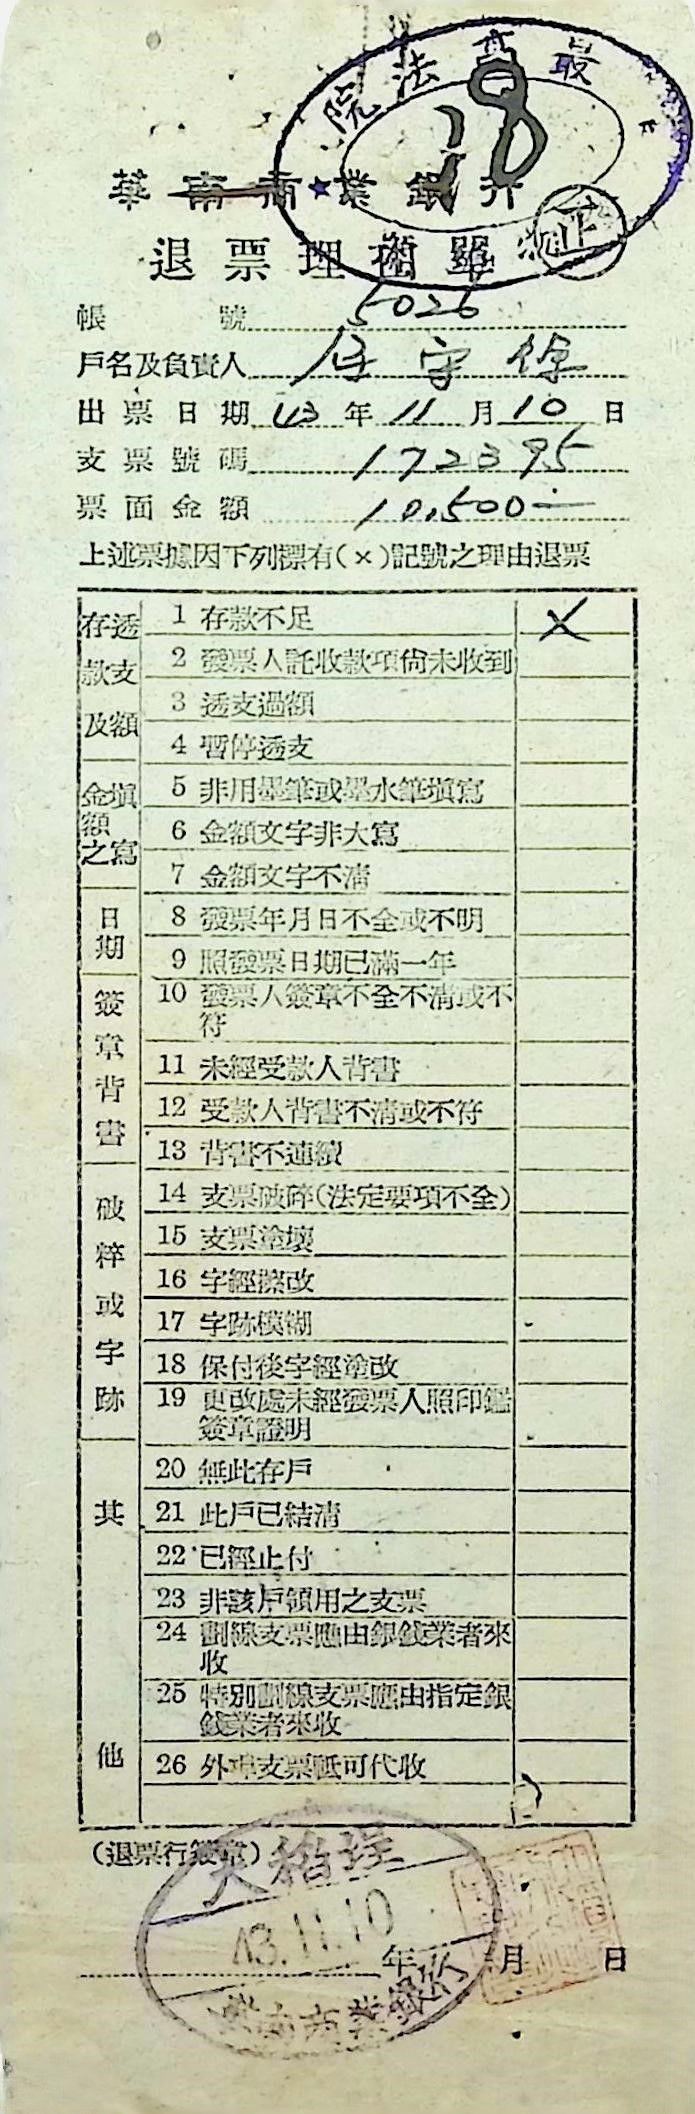 最高法院
18
華南商業銀行
退票理由單
正
帳號 5026
戶名及負責人
出票日期 43年11月10日
支票號碼 172395
票面金額 10,500
上述票據因下列標有(×)記號之理由退票
存款及透支額
1 存款不足 ×
2 發票人託收款項尙未收到
3 透支過額
4 暫停透支
金額之塡寫
5 非用墨筆或墨水筆塡寫
6 金額文字非大寫
7 金額文字不清
日期
8 發票年月日不全或不明
9 照發票日期已滿一年
簽章背書
10 發票人簽章不全不清或不
符
11 未經受款人背書
12 受款人背書不清或不符
13 背書不連續
破粹或字跡
14 支票破碎(法定要項不全)
15 支票塗壞
16 字經擦改
17 字跡模糊
18 保付後字經塗改
19 更改處未經發票人照印鑑
簽章證明
其他
20 無此存戶
21 此戶已結清
22 已經止付
23 非該戶領用之支票
24 劃線支票應由銀錢業者來
收
25 特別劃線支票應由指定銀
錢業者來收
26 外埠支票祗可代收
(退票行簽章)
大稻埕
43.11.10
年 月 日
華南商業銀行